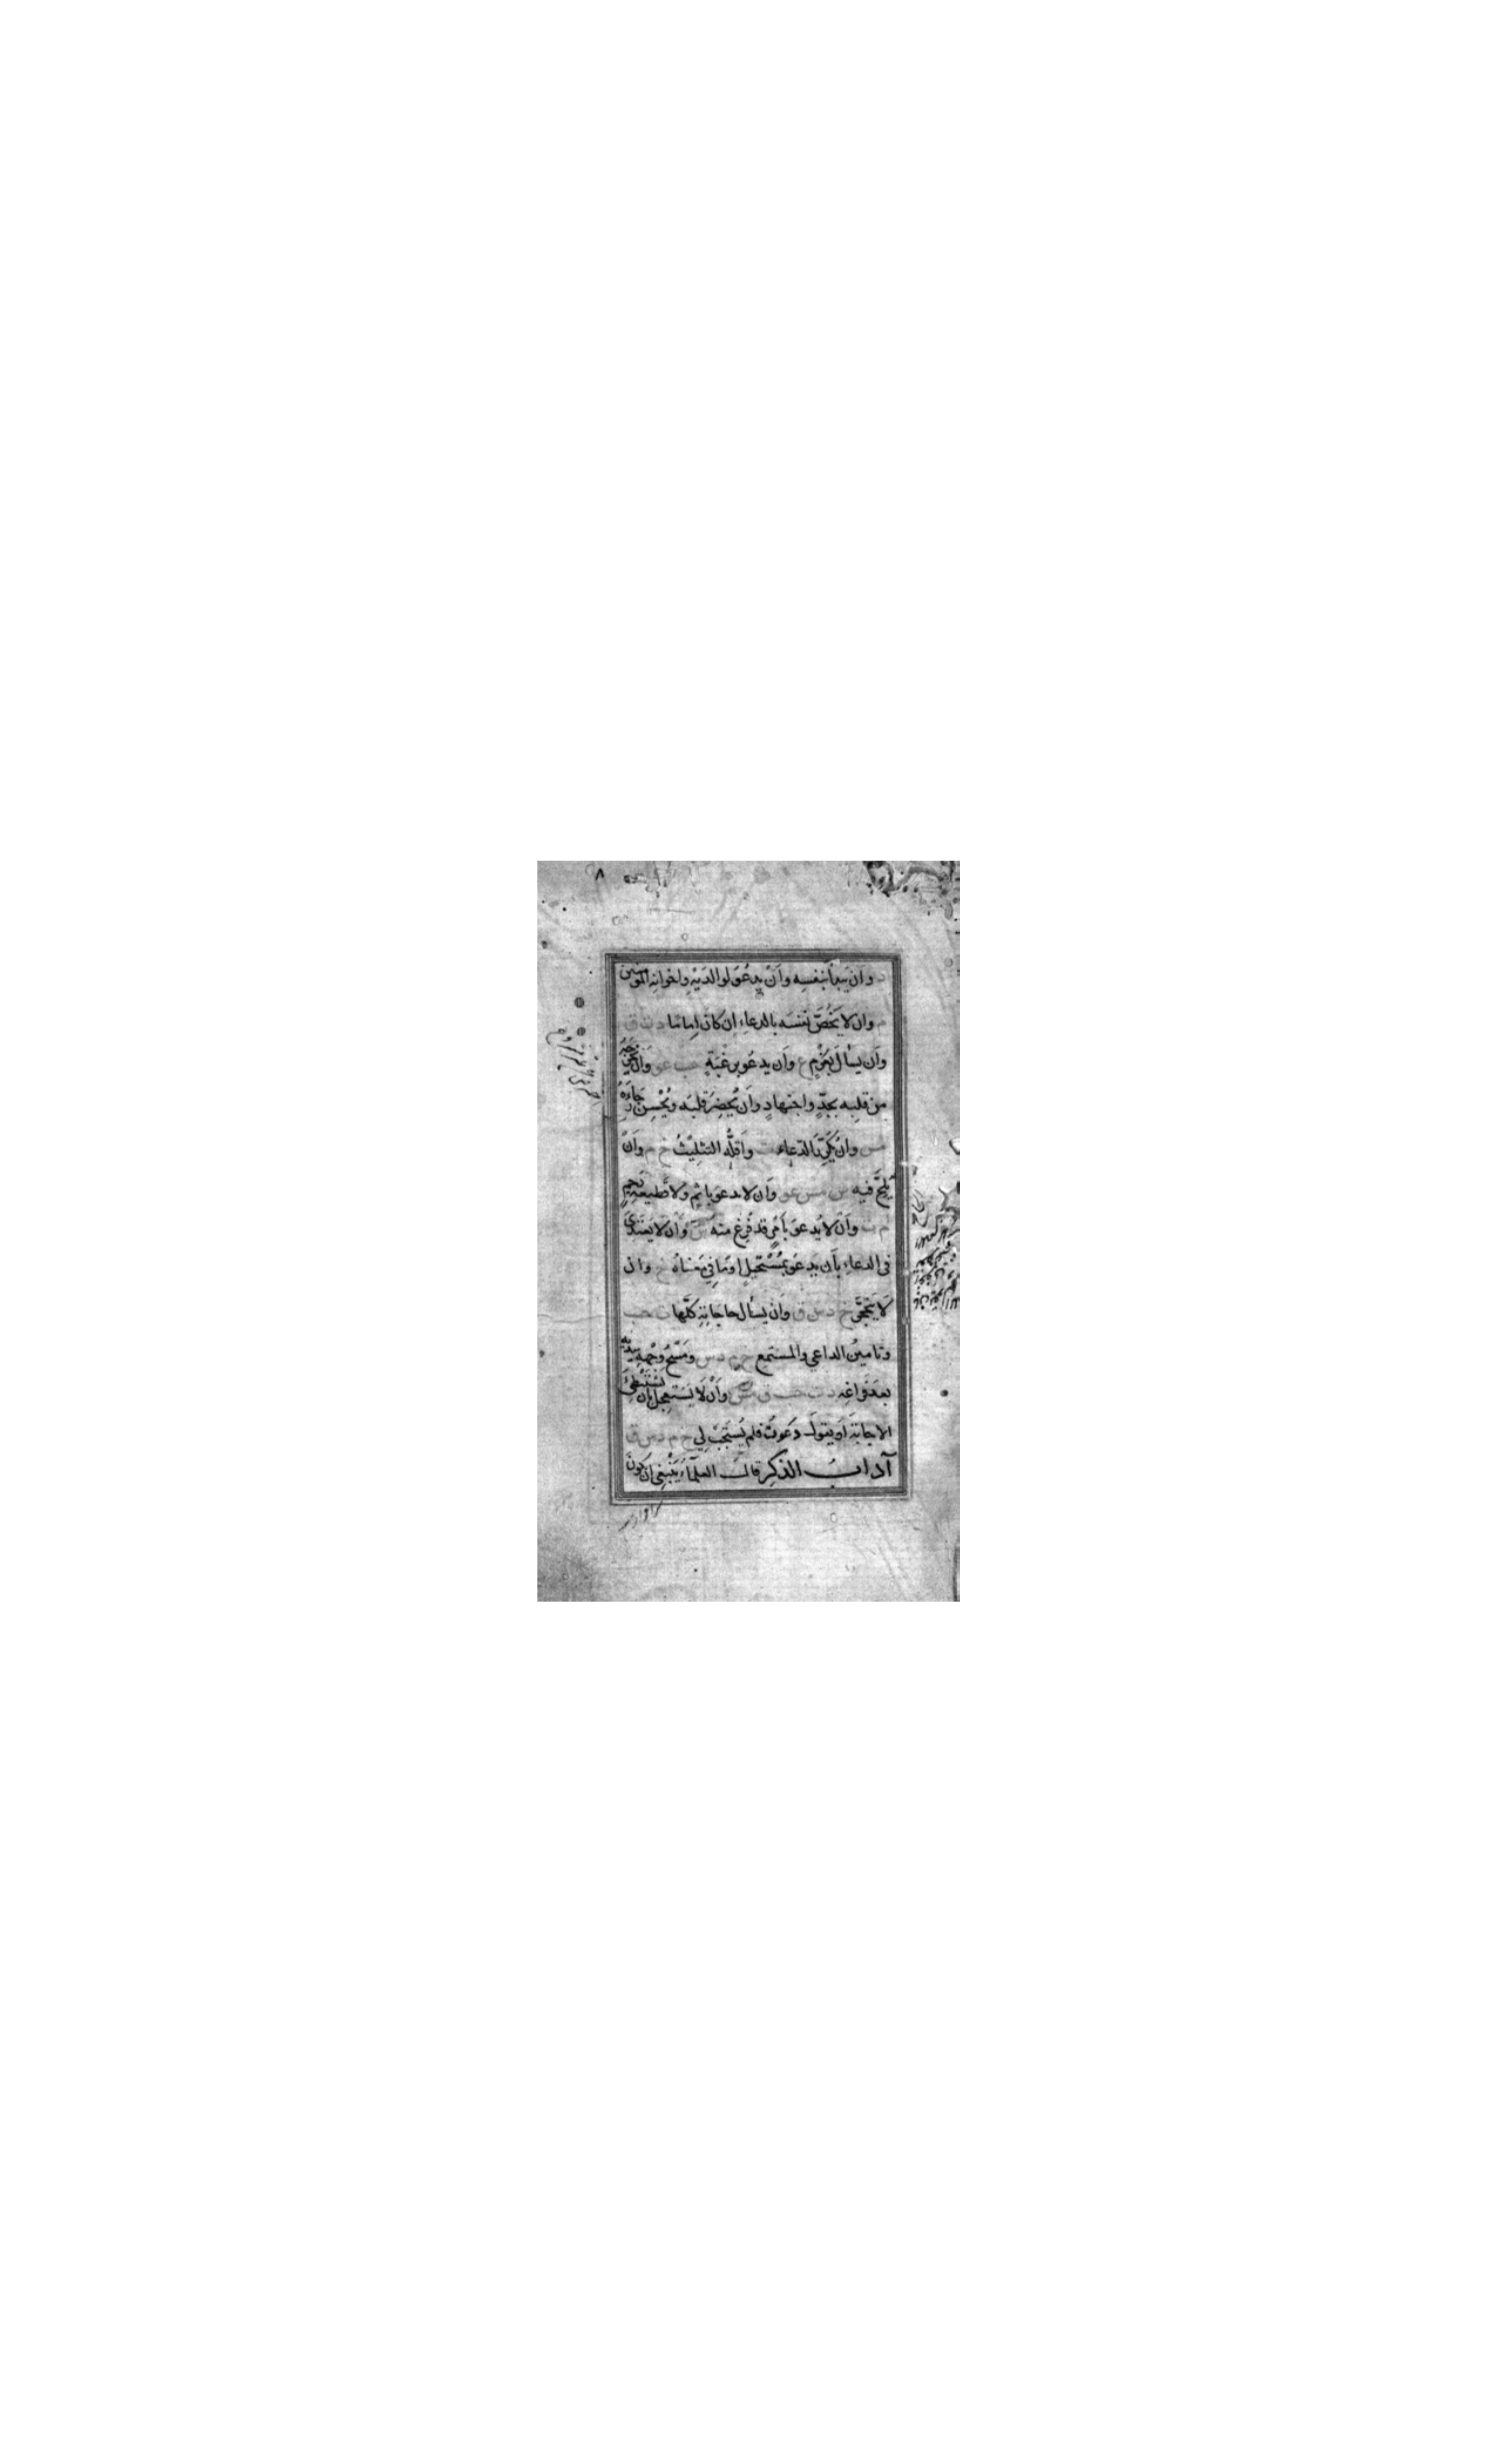 ٨
د وَاَن يَبدأ بنَفسِه وَاَنْ يدعُوَ لوالدَيْهِ واخوانِه المؤمنين
م وان لا يَخُصَّ نفسَه بالدعاءِ اِن كانَ اِمامًا د ت ق
وَاَن يسأَلَ بعَزْمٍ ع وَاَن يدعُوَ برغبَةٍ حب عو وَاَن يُخرِجَهُ
من قلبِه بجِدٍّ واجتهادٍ وَاَن يُحْضِرَ قلبَه ويُحْسِنَ رجاءَهُ
مس وَاَنْ يُكَرِّرَ الدعاء ت واَقلُّه التثلِيْثُ خ م وَاَنْ
يُلِحَّ فيه س مس عو وَاَن لا يدعوَ باثمٍ ولا قطيعةِ رَحِمٍ
م ت وَاَن لا يَدعوَ بأَمْرٍ قد فُرِغَ منه س وَاَن لا يَعْتَدِيَ
فى الدعاءِ بِاَن يدعُوَ بمُسْتَحِيلٍ اوْ مَا فِي مَعْناهُ خ وان
لَا يَتَحَجَّرَ خ د س ق وَاَن يسأل حاجاتِهِ كُلَّها ت حب
وتامينُ الداعي والمستمعِ خ م د س ومَسْحُ وَجْهِهِ بِيَدَيهِ
بعدَ فَراغِه د ت حب ق مس وَاَنْ لَا يَسْتَعجِلَ بِاَن يَسْتَبْطِئَ
الاجابةَ اَو يقولَ دَعوتُ فلم يُسْتَجَبْ لِي خ م د س ق
آدابُ الذكرِ قال العلمآءُ يَنْبَغِي اَن يكونَ